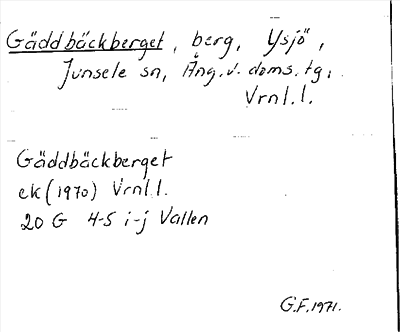 Gäddbäckberget, berg, Ysjö,
Junsele sn, Äng. v. doms. tg.
Vrnl.l.
Gäddbäckberget
ek (1970) Vrnl.l.
20 G 4-5 i-j Vallen
G.F. 1971.